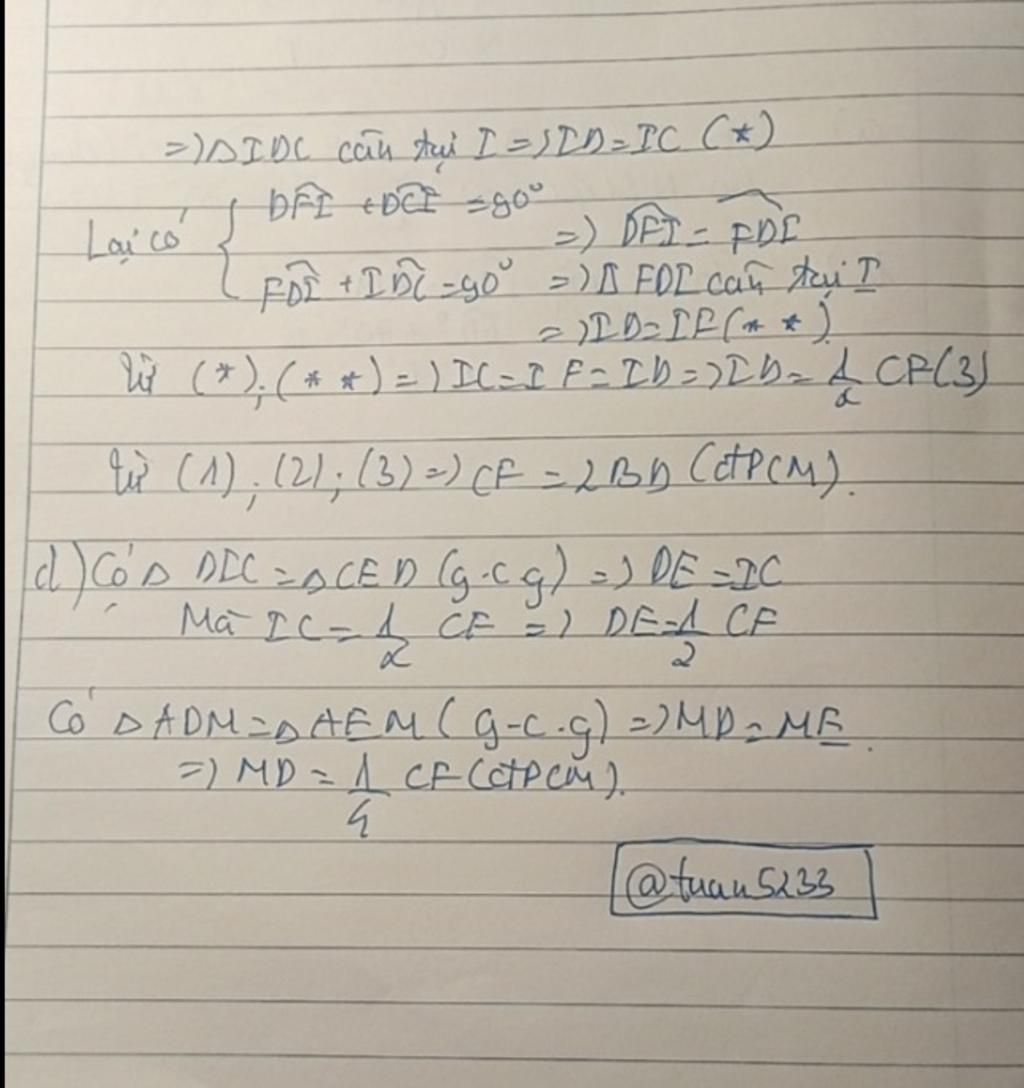 =) Δ IDC cân tại I =) ID = IC (*)
Lại có { DFI + DCI = 90°
=) DFI = FDI
FDI + IDC = 90° =) Δ FDI cân tại I
=) ID = IF (**)
Từ (*); (**) =) IC = IF = ID =) ID = 1/2 CF (3)
Từ (1); (2); (3) =) CF = 2BD (ĐPCM).
d) Có Δ DIC = Δ CED (g.c.g) =) DE = IC
Mà IC = 1/2 CF =) DE = 1/2 CF
Có Δ ADM = Δ AEM (g-c.g) =) MD = ME.
=) MD = 1/4 CF (ĐPCM).
@tuan5233